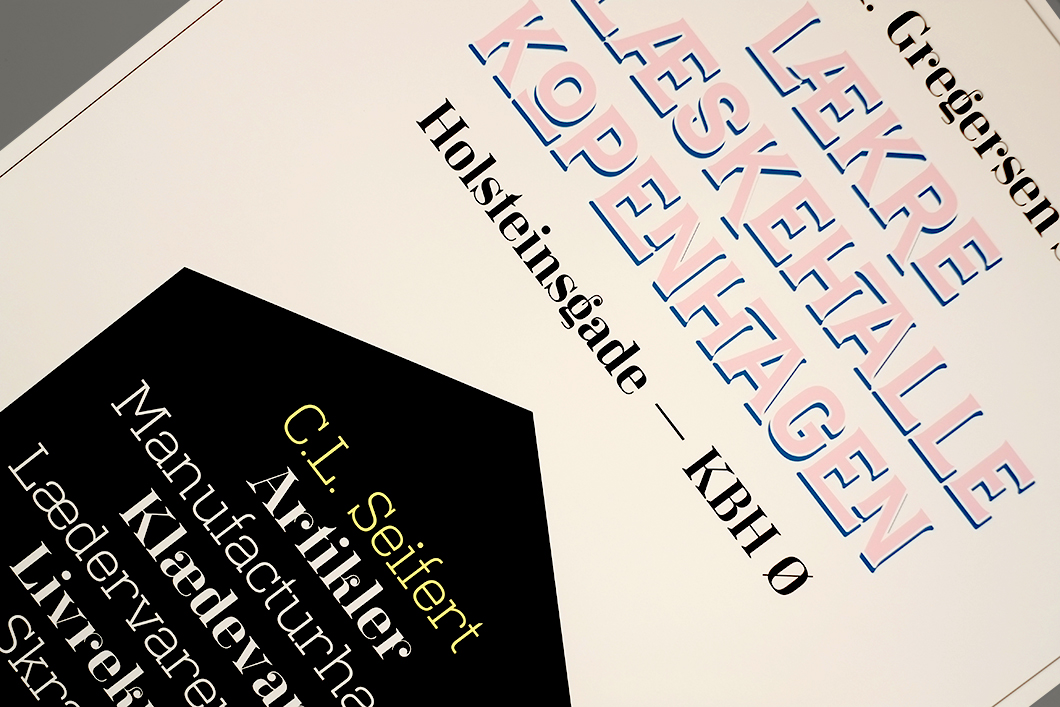 Gregersen
LÆKRE
LÆSKEHALLE
KOPENHAGEN
Holsteinsgade — KBH Ø
C.L. Seifert
Artikler
Manufacturha
Klædevar
Lædervarer
Livrek
Skr